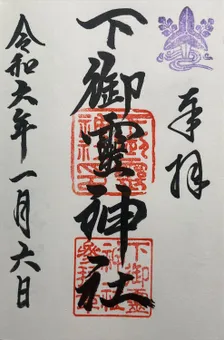 奉拝
下御霊神社
令和六年一月六日
下御霊神社参拝